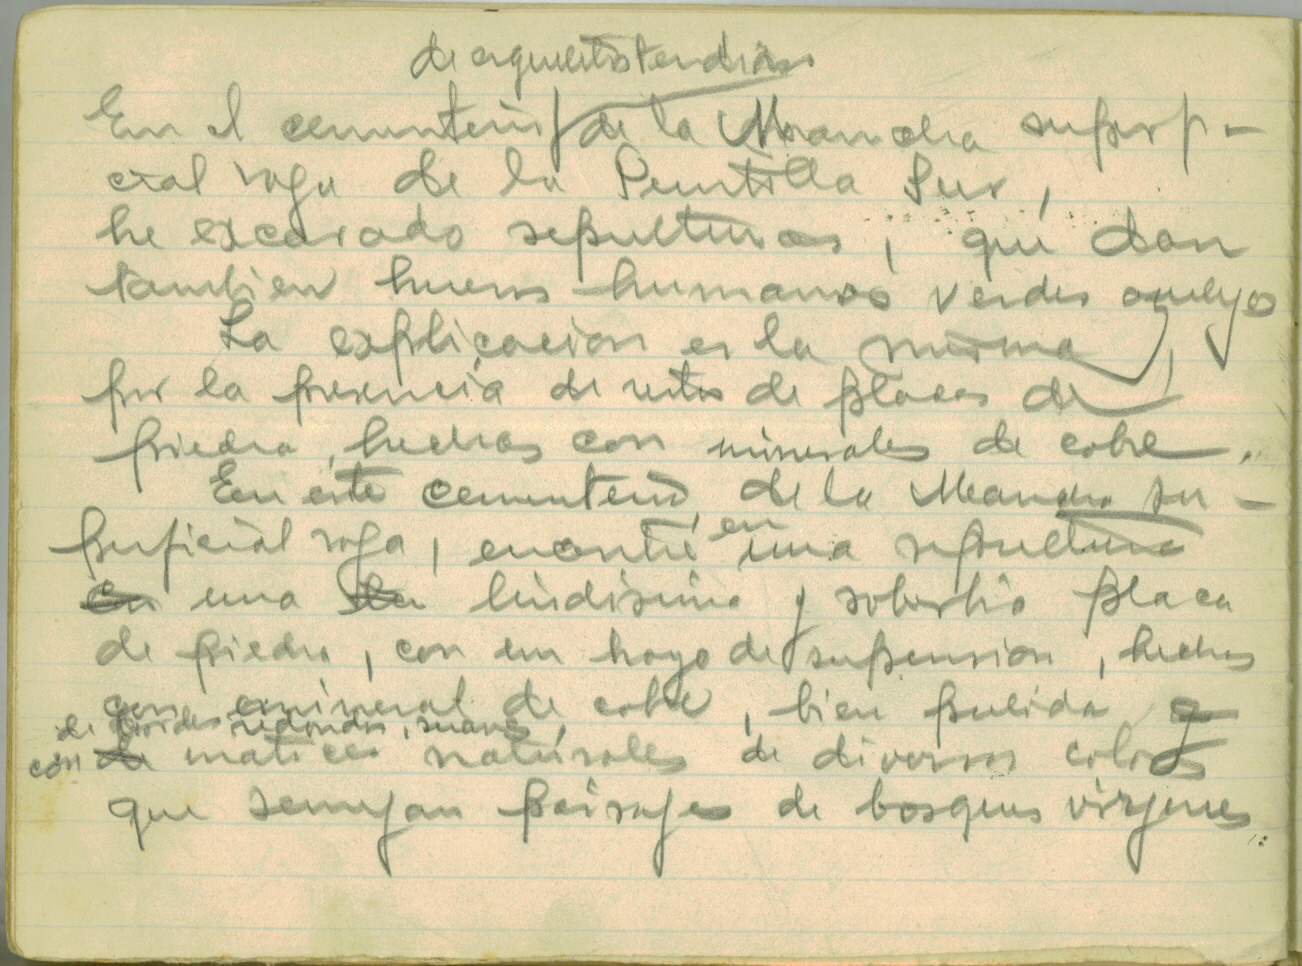 de esqueletos tendidos
En el cementerio de la Mancha superfi-
cial roja de la Puntilla Sur,
he excavado sepulturas, que dan
tambien huesos humanos verdes
La explicacion es la misma
por la presencia de restos de placas de
piedra, hechas con minerales de cobre.
En este cementerio, de la Mancha su-
perficial roja, encontré en una sepultura
en una la lindisima y soberbia placa
de piedra, con un hoyo de suspension, hecha
con mineral de cobre, bien pulida
de bordes redondos, suaves,
con de matices naturales de diversos colores
que semejan paisajes de bosques virgenes